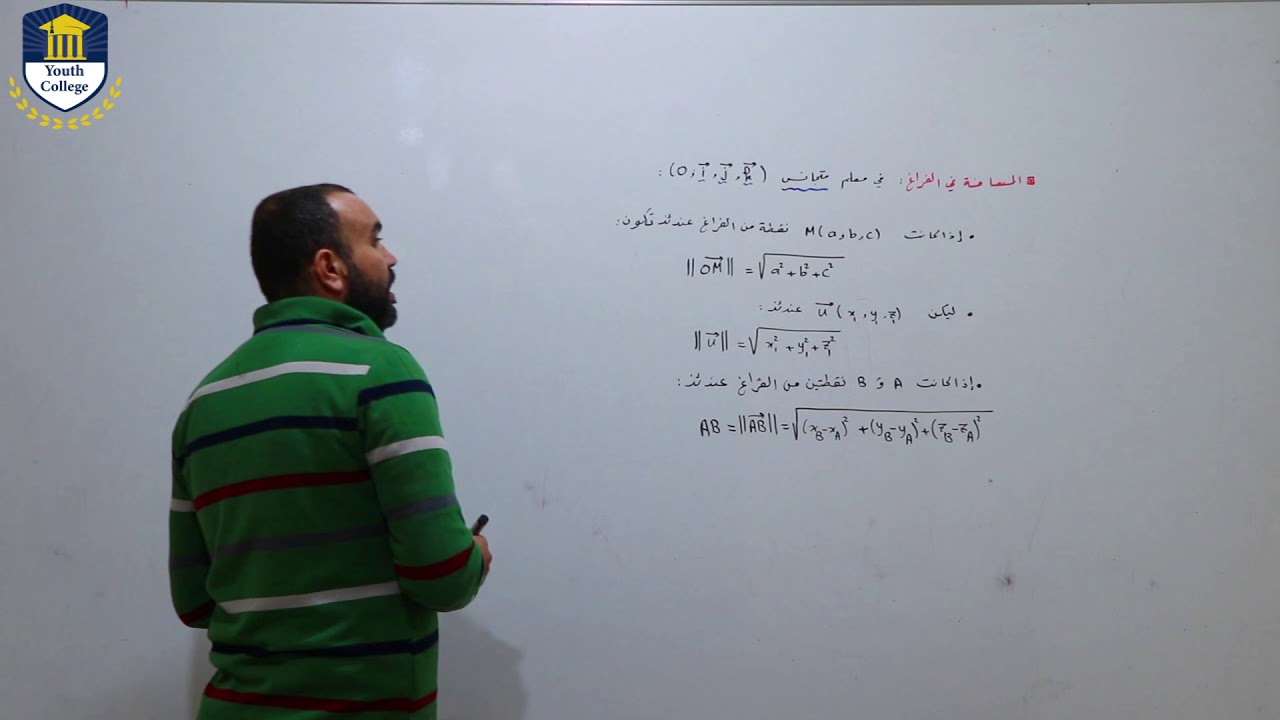 Youth
College
المسافة في الفراغ: في معلم متجانس (O, i⃗, j⃗, k⃗):
• إذا كانت M(a,b,c) نقطة من الفراغ عندئذ تكون:
||OM⃗|| = √(a² + b² + c²)
• ليكن u⃗(x₁, y₁, z₁) عندئذ:
||u⃗|| = √(x₁² + y₁² + z₁²)
• إذا كانت A و B نقطتين من الفراغ عندئذ:
AB = ||AB⃗|| = √((x_B - x_A)² + (y_B - y_A)² + (z_B - z_A)²)